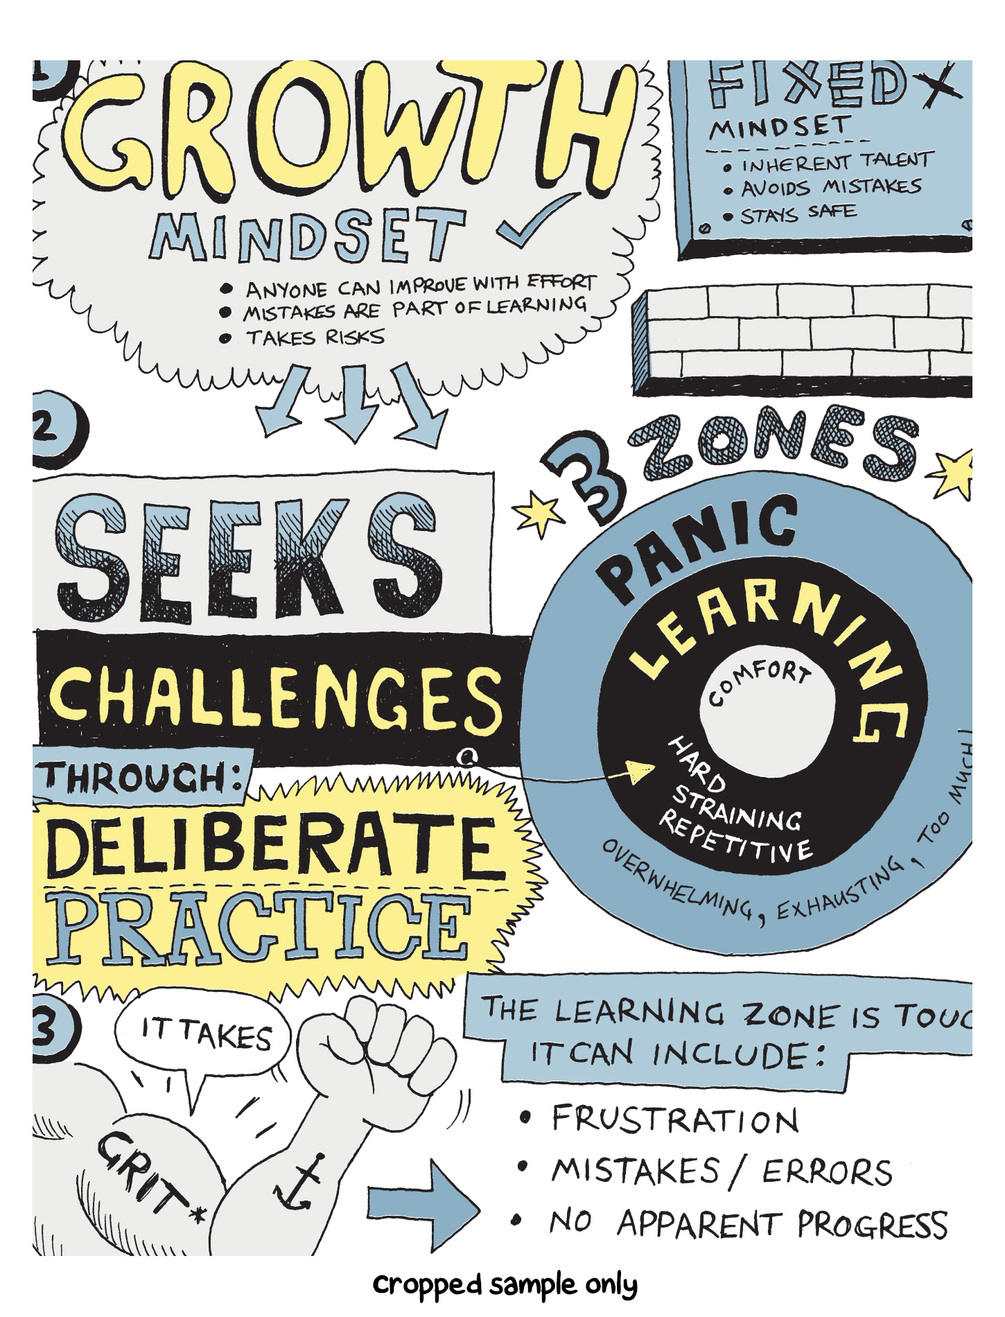 1
GROWTH
MINDSET
• ANYONE CAN IMPROVE WITH EFFORT
• MISTAKES ARE PART OF LEARNING
• TAKES RISKS
FIXED
MINDSET
• INHERENT TALENT
• AVOIDS MISTAKES
• STAYS SAFE
2
SEEKS
CHALLENGES
THROUGH:
DELIBERATE
PRACTICE
3 ZONES
PANIC
LEARNING
COMFORT
HARD
STRAINING
REPETITIVE
OVERWHELMING, EXHAUSTING, TOO MUCH!
3
IT TAKES
GRIT*
THE LEARNING ZONE IS TOUG
IT CAN INCLUDE:
• FRUSTRATION
• MISTAKES / ERRORS
• NO APPARENT PROGRESS
cropped sample only